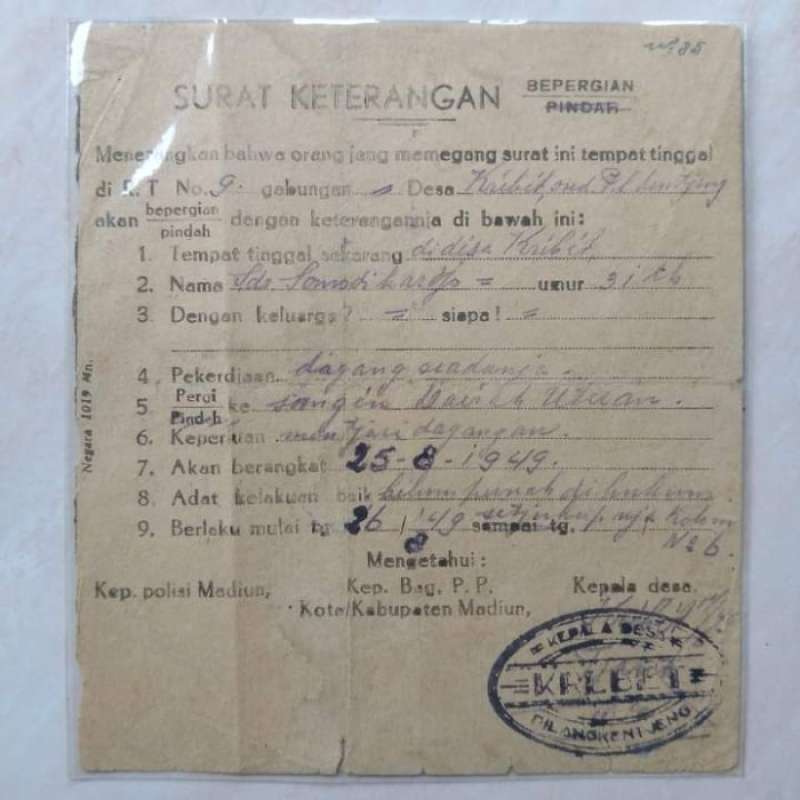 No. 85
SURAT KETERANGAN BEPERGIAN
PINDAH
Menerangkan bahwa orang jang memegang surat ini tempat tinggal
di R.T No. 9. gabungan Desa Kribit, ond. P.l. kentjeng
akan bepergian
pindah dengan keterangannja di bawah ini:
1. Tempat tinggal sekarang didisa Kribit
2. Nama Sdr. umur 31 th
3. Dengan keluarga? = siapa! =
4. Pekerdjaan dagang seadanja.
5. Pergi
Pindah ke Utaran.
6. Keperluan mentjari dagangan.
7. Akan berangkat 25-8-1949.
8. Adat kelakuan baik belum pernah di hukum
9. Berlaku mulai tg. 26/8 '49 sampai tg. Kolom
No 6.
Mengetahui:
Kep. polisi Madiun, Kep. Bag. P. P. Kepala desa.
Kota/Kabupaten Madiun,
KEPALA DESA
KREBET
PILANGKENTJENG
Negara 1019 Mn.